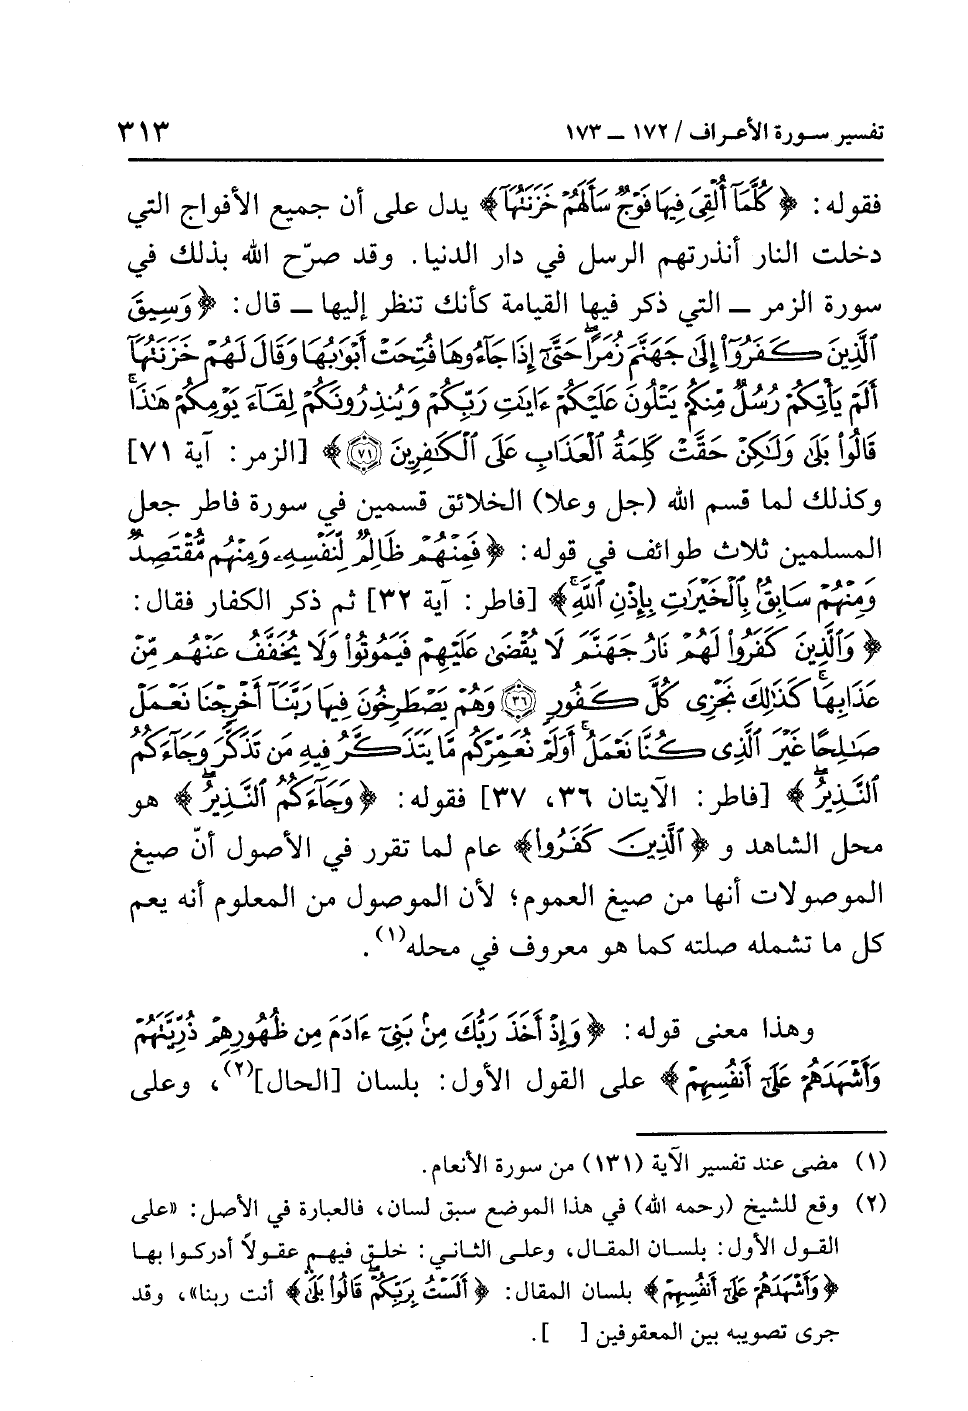 تفسير سورة الأعراف / ١٧٢ ــ ١٧٣ ٣١٣
فقوله: ﴿ كُلَّمَآ أُلْقِىَ فِيهَا فَوْجٌ سَأَلَهُمْ خَزَنَتُهَآ﴾ يدل على أن جميع الأفواج التي
دخلت النار أنذرتهم الرسل في دار الدنيا. وقد صرّح الله بذلك في
سورة الزمر ــ التي ذكر فيها القيامة كأنك تنظر إليها ــ قال: ﴿ وَسِيقَ
ٱلَّذِينَ كَفَرُوٓا۟ إِلَىٰ جَهَنَّمَ زُمَرًا ۖ حَتَّىٰٓ إِذَا جَآءُوهَا فُتِحَتْ أَبْوَٰبُهَا وَقَالَ لَهُمْ خَزَنَتُهَآ
أَلَمْ يَأْتِكُمْ رُسُلٌ مِّنكُمْ يَتْلُونَ عَلَيْكُمْ ءَايَٰتِ رَبِّكُمْ وَيُنذِرُونَكُمْ لِقَآءَ يَوْمِكُمْ هَٰذَا ۚ
قَالُوا۟ بَلَىٰ وَلَٰكِنْ حَقَّتْ كَلِمَةُ ٱلْعَذَابِ عَلَى ٱلْكَٰفِرِينَ ٧١ ﴾ [الزمر: آية ٧١]
وكذلك لما قسم الله (جل وعلا) الخلائق قسمين في سورة فاطر جعل
المسلمين ثلاث طوائف في قوله: ﴿ فَمِنْهُمْ ظَالِمٌ لِّنَفْسِهِۦ وَمِنْهُم مُّقْتَصِدٌ
وَمِنْهُمْ سَابِقٌۢ بِٱلْخَيْرَٰتِ بِإِذْنِ ٱللَّهِ ۚ﴾ [فاطر: آية ٣٢] ثم ذكر الكفار فقال:
﴿ وَٱلَّذِينَ كَفَرُوا۟ لَهُمْ نَارُ جَهَنَّمَ لَا يُقْضَىٰ عَلَيْهِمْ فَيَمُوتُوا۟ وَلَا يُخَفَّفُ عَنْهُم مِّنْ
عَذَابِهَا ۚ كَذَٰلِكَ نَجْزِى كُلَّ كَفُورٍ ٣٦ وَهُمْ يَصْطَرِخُونَ فِيهَا رَبَّنَآ أَخْرِجْنَا نَعْمَلْ
صَٰلِحًا غَيْرَ ٱلَّذِى كُنَّا نَعْمَلُ ۚ أَوَلَمْ نُعَمِّرْكُم مَّا يَتَذَكَّرُ فِيهِ مَن تَذَكَّرَ وَجَآءَكُمُ
ٱلنَّذِيرُ ۖ ﴾ [فاطر: الآيتان ٣٦، ٣٧] فقوله: ﴿ وَجَآءَكُمُ ٱلنَّذِيرُ ۖ ﴾ هو
محل الشاهد و ﴿ ٱلَّذِينَ كَفَرُوا۟﴾ عام لما تقرر في الأصول أنّ صيغ
الموصولات أنها من صيغ العموم؛ لأن الموصول من المعلوم أنه يعم
كل ما تشمله صلته كما هو معروف في محله(١).
وهذا معنى قوله: ﴿ وَإِذْ أَخَذَ رَبُّكَ مِنۢ بَنِىٓ ءَادَمَ مِن ظُهُورِهِمْ ذُرِّيَّتَهُمْ
وَأَشْهَدَهُمْ عَلَىٰٓ أَنفُسِهِمْ ﴾ على القول الأول: بلسان [الحال](٢)، وعلى
(١) مضى عند تفسير الآية (١٣١) من سورة الأنعام.
(٢) وقع للشيخ (رحمه الله) في هذا الموضع سبق لسان، فالعبارة في الأصل: «على
القول الأول: بلسان المقال، وعلى الثاني: خلق فيهم عقولاً أدركوا بها
﴿ وَأَشْهَدَهُمْ عَلَىٰٓ أَنفُسِهِمْ ﴾ بلسان المقال: ﴿ أَلَسْتُ بِرَبِّكُمْ ۖ قَالُوا۟ بَلَىٰ ﴾ أنت ربنا»، وقد
جرى تصويبه بين المعقوفين [ ].